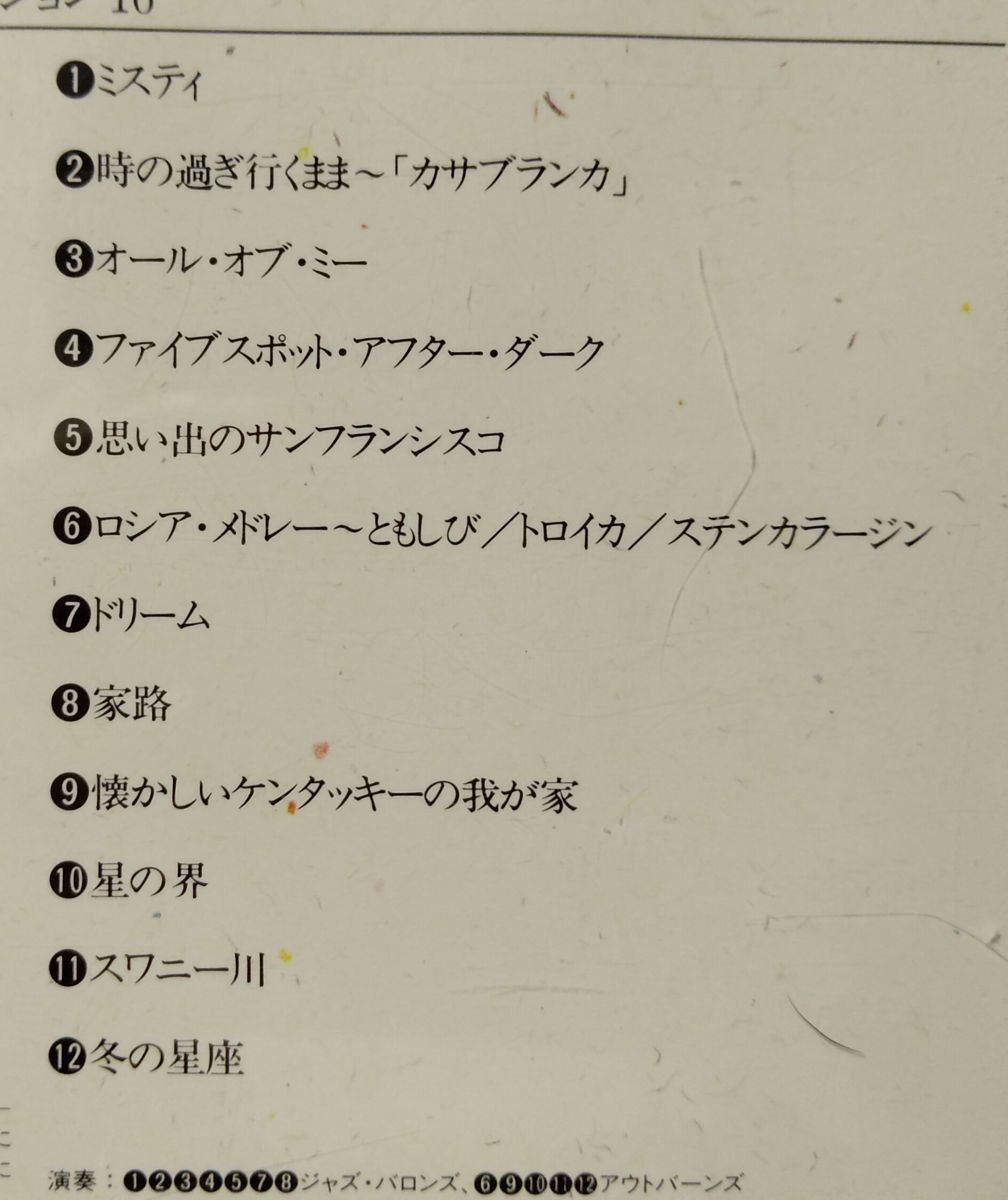 ション 10
❶ミスティ
❷時の過ぎ行くまま〜「カサブランカ」
❸オール・オブ・ミー
❹ファイブスポット・アフター・ダーク
❺思い出のサンフランシスコ
❻ロシア・メドレー〜ともしび／トロイカ／ステンカラージン
❼ドリーム
❽家路
❾懐かしいケンタッキーの我が家
❿星の界
⓫スワニー川
⓬冬の星座
演奏：❶❷❸❹❺❼❽ジャズ・バロンズ、❻❾❿⓫⓬アウトバーンズ